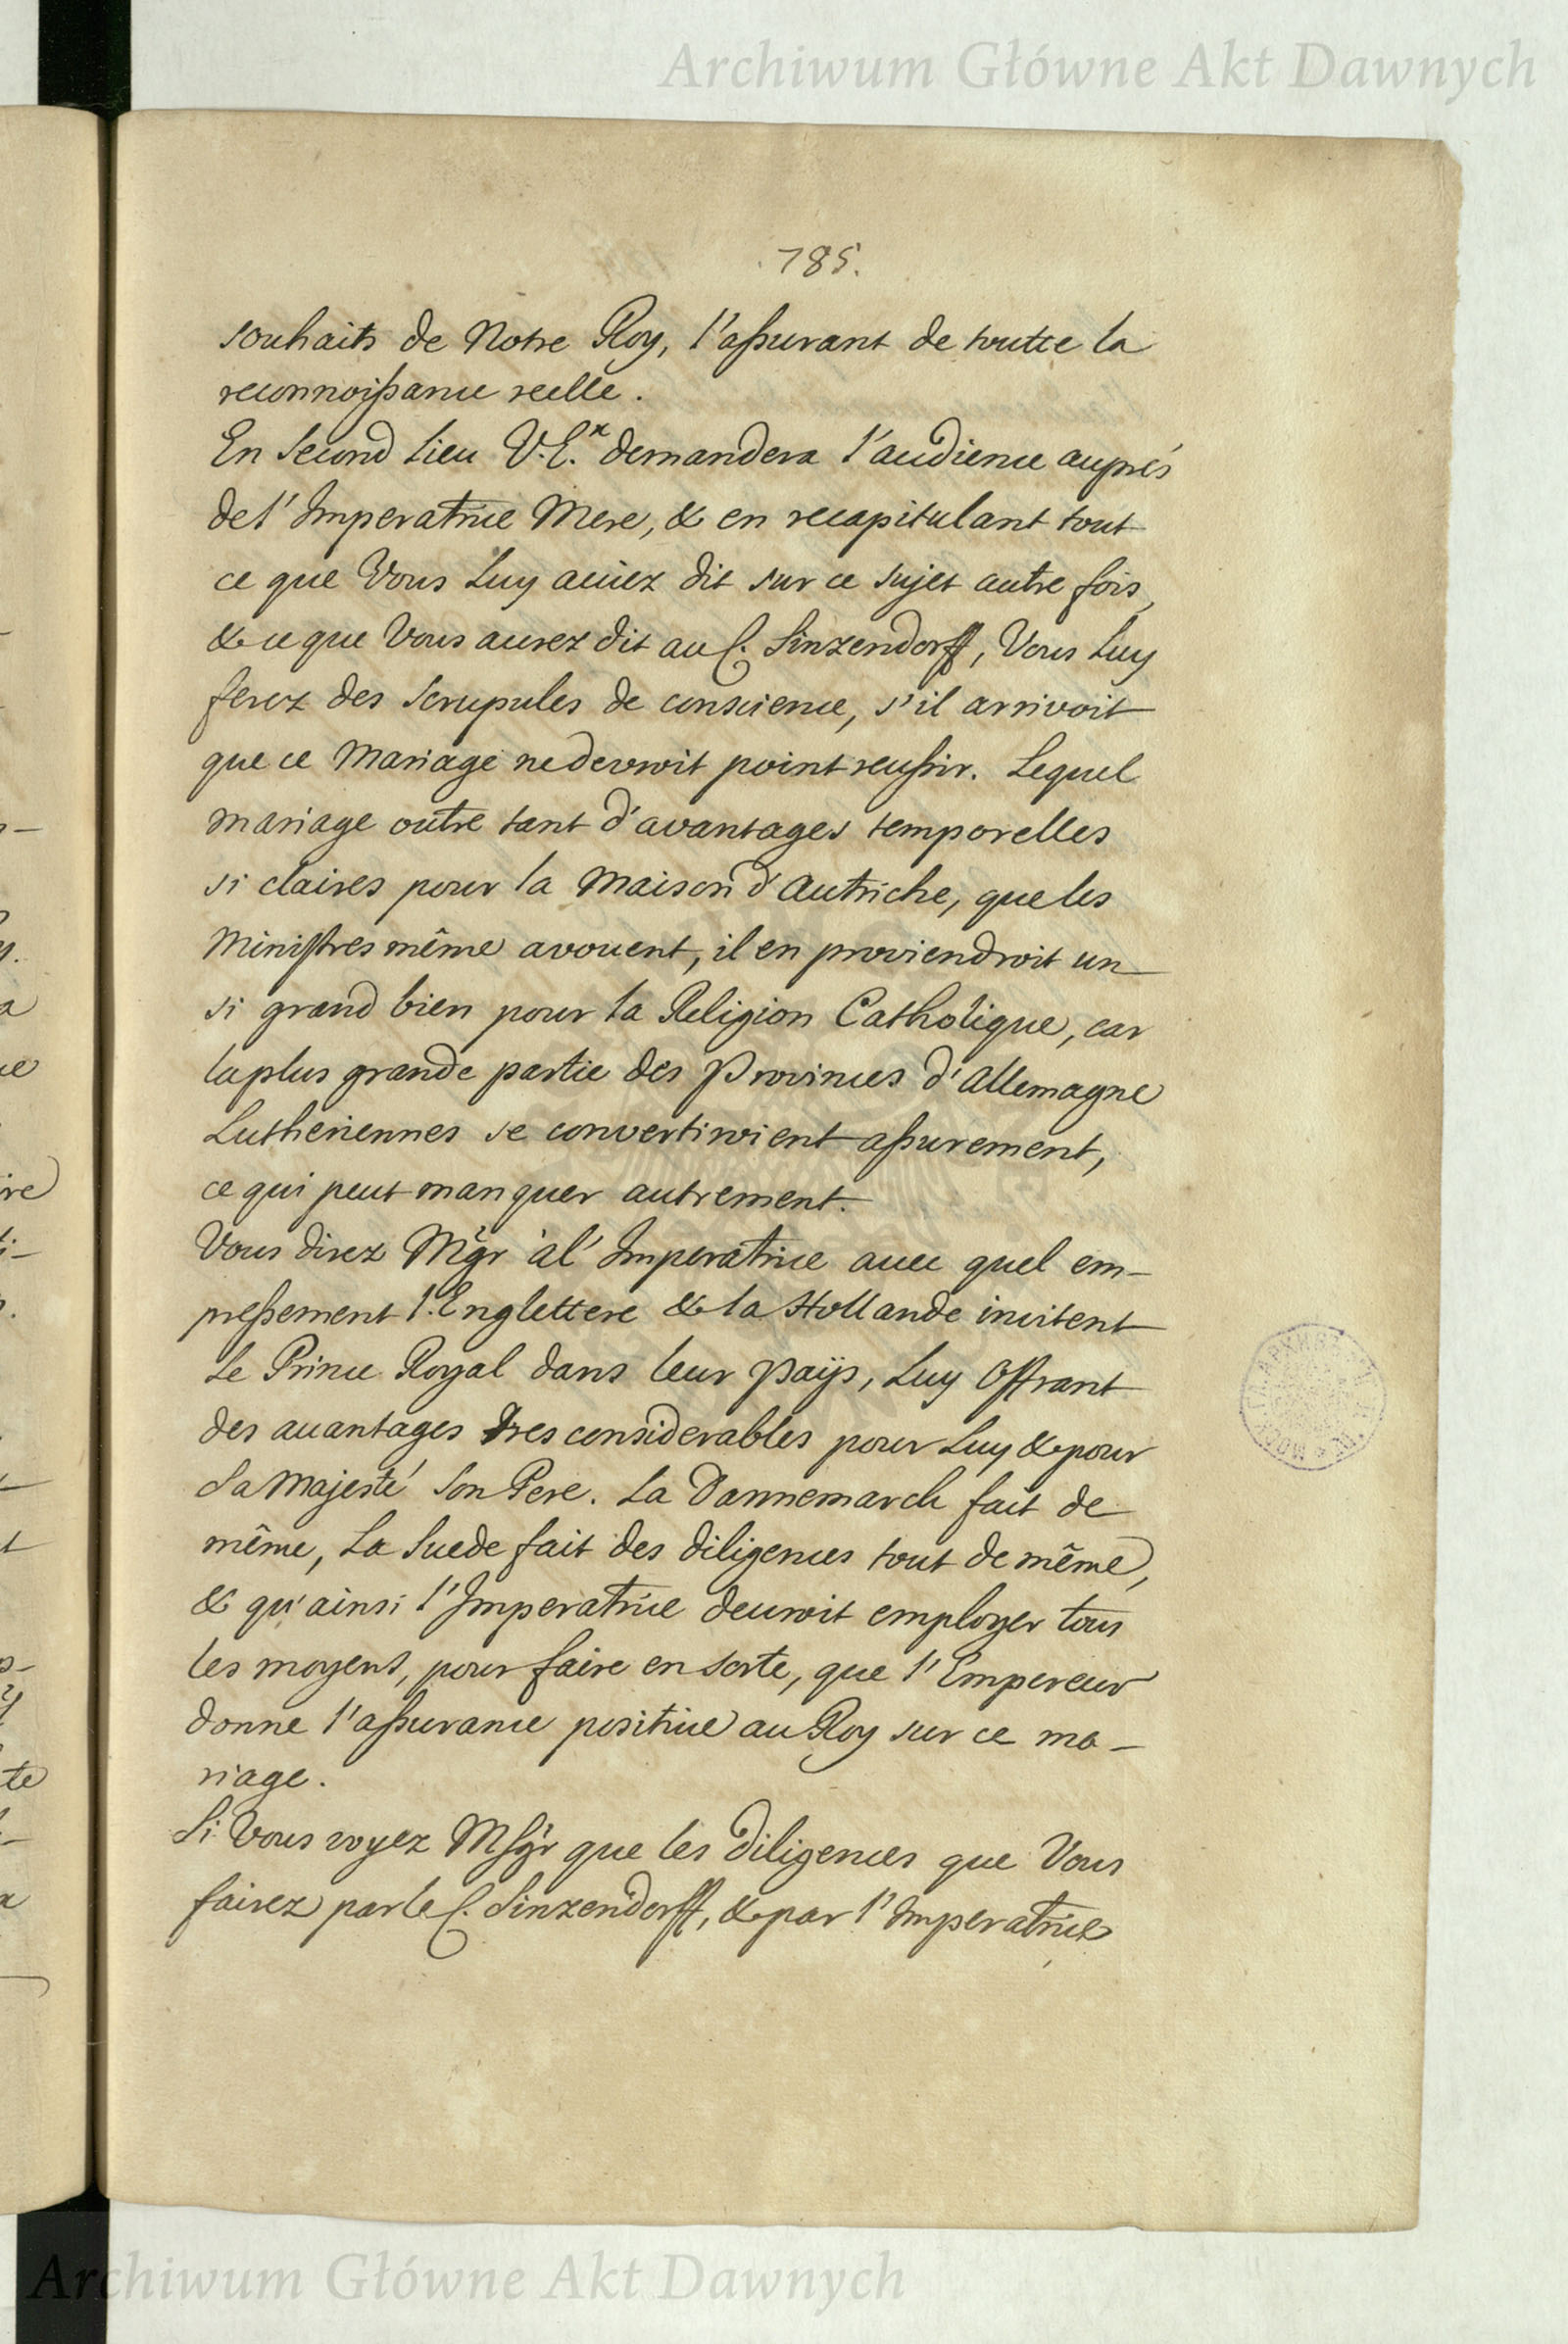 Archiwum Główne Akt Dawnych
785.
souhaits de Notre Roy, l'assurant de toutte la
reconnoissance reelle.
En second lieu V.E.ˣ demandera l'audience auprés
de l'Imperatrice Mere, & en recapitulant tout
ce que Vous Luy aviez dit sur ce sujet autre fois,
& ce que Vous aurez dit au C. Sinzendorff, Vous Luy
ferez des scrupules de conscience, s'il arrivoit
que ce Mariage ne devroit point reussir. Lequel
mariage outre tant d'avantages temporelles
si claires pour la Maison d'Autriche, que les
Ministres même avouent, il en proviendroit un
si grand bien pour la Religion Catholique, car
la plus grande partie des Provinces d'Allemagne
Lutheriennes se convertiroient assurement,
ce qui peut manquer autrement.
Vous direz Mgr à l'Imperatrice avec quel em-
pressement l'Englettere & la Hollande invitent
Le Prince Royal dans leur païs, Luy Offrant
des auantages Tres considerables pour Luy & pour
Sa Majesté Son Pere. La Dannemarck fait de
même, La Suede fait des diligences tout de même,
& qu'ainsi l'Imperatrice deuroit employer tous
les moyens, pour faire en sorte, que l'Empereur
donne l'assurance positiue au Roy sur ce ma-
riage.
Si Vous voyez Msgr que les Diligences que Vous
fairez par le C. Sinzendorff, & par l'Imperatrice
Archiwum Główne Akt Dawnych